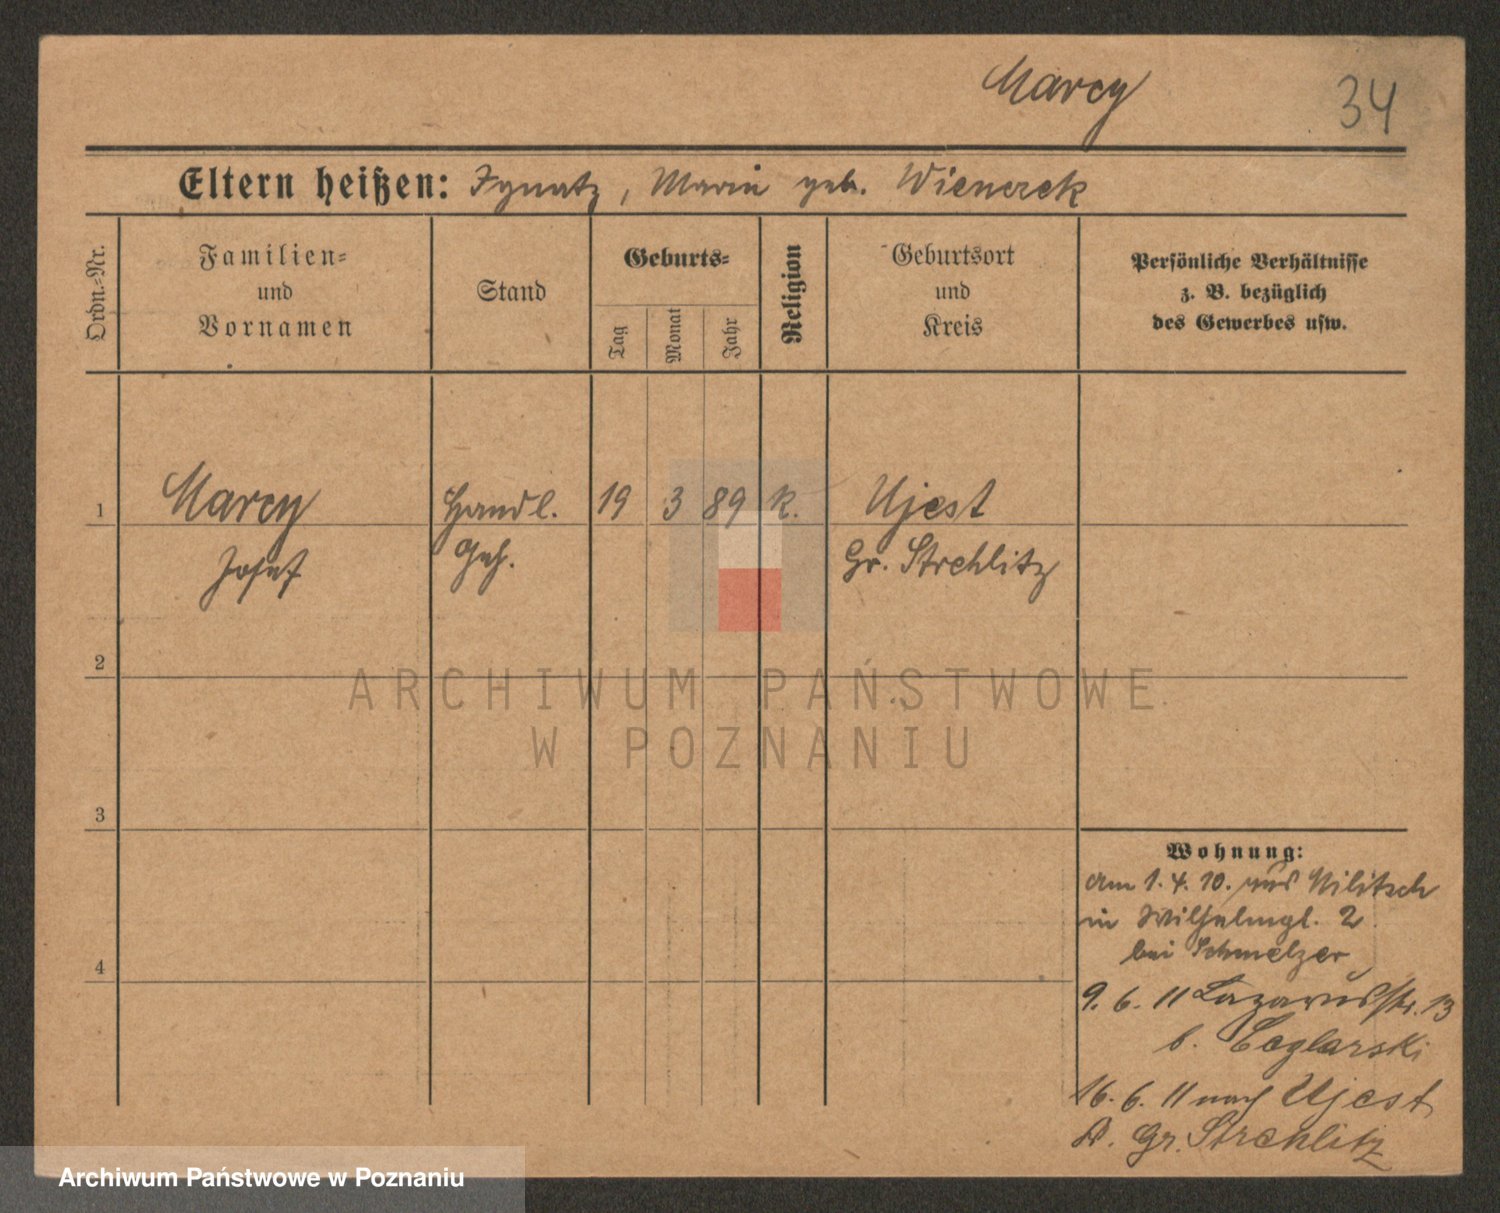 Marcy
34
Eltern heißen: Ignatz, Marie geb. Wienerek
Ordn.-Nr.
Familien-
und
Vornamen
Stand
Geburts-
Tag
Monat
Jahr
Religion
Geburtsort
und
Kreis
Persönliche Verhältnisse
z. B. bezüglich
des Gewerbes usw.
1 Marcy Handl. 19 3 89 k. Ujest
Josef Geh. Gr. Strehlitz
2
ARCHIWUM PAŃSTWOWE
W POZNANIU
3
Wohnung:
am 1. 4. 10. aus Militsch
in Wilhelmpl. 2
bei Schmelzer
4
9. 6. 11 Lazarusstr. 13
b.
16. 6. 11 nach Ujest
K. Gr. Strehlitz
Archiwum Państwowe w Poznaniu